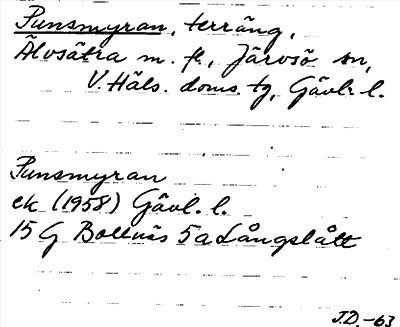 Punsmyran, terräng,
Älvsätra m. fl., Järvsö sn,
V. Häls. doms. tg, Gävl. l.
Punsmyran
ek (1958) Gävl. l.
15 G Bollnäs 5 a Långslått
J.D. -63